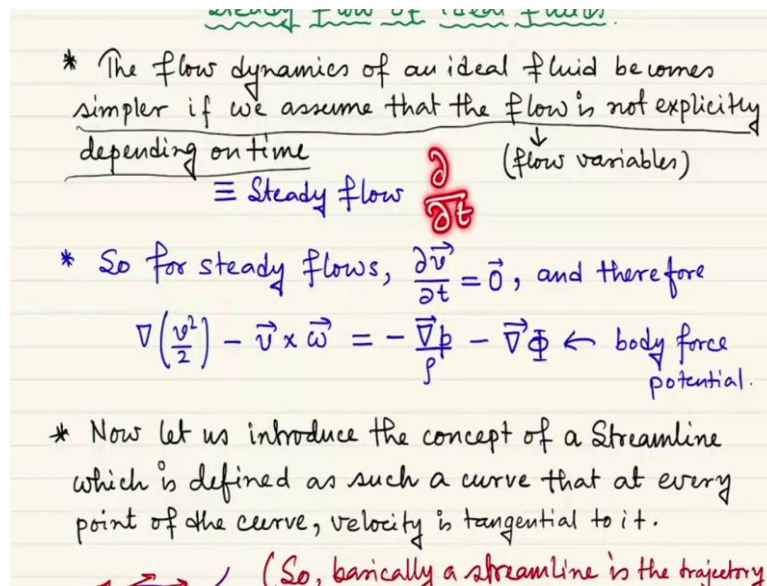 Steady flow of ideal fluids.
* The flow dynamics of an ideal fluid becomes
simpler if we assume that the flow is not explicitly
depending on time ↓ (flow variables)
≡ Steady flow ∂/∂t
* So for steady flows, ∂v⃗/∂t = 0⃗, and therefore
∇(v²/2) - v⃗ × ω⃗ = - ∇⃗p/ρ - ∇⃗Φ ← body force
potential.
* Now let us introduce the concept of a Streamline
which is defined as such a curve that at every
point of the curve, velocity is tangential to it.
(So, basically a streamline is the trajectory